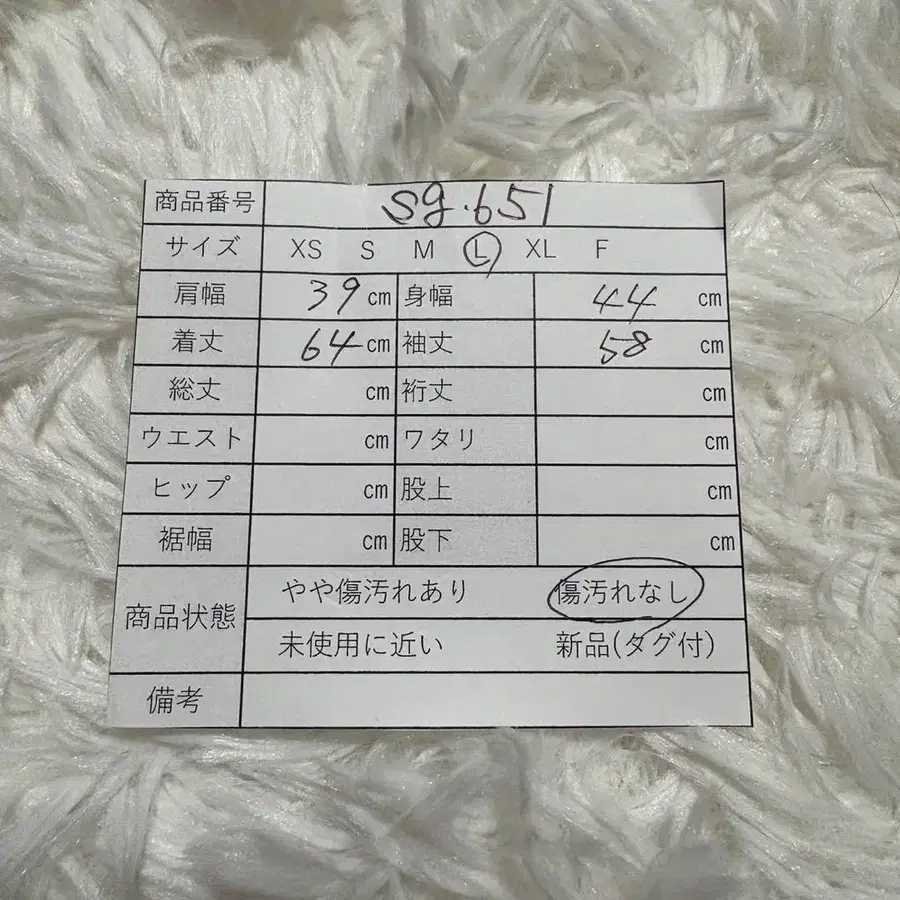 商品番号 sg.651
サイズ XS S M L XL F
肩幅 39 cm 身幅 44 cm
着丈 64 cm 袖丈 58 cm
総丈 cm 裄丈 cm
ウエスト cm ワタリ cm
ヒップ cm 股上 cm
裾幅 cm 股下 cm
商品状態 やや傷汚れあり 傷汚れなし
未使用に近い 新品(タグ付)
備考